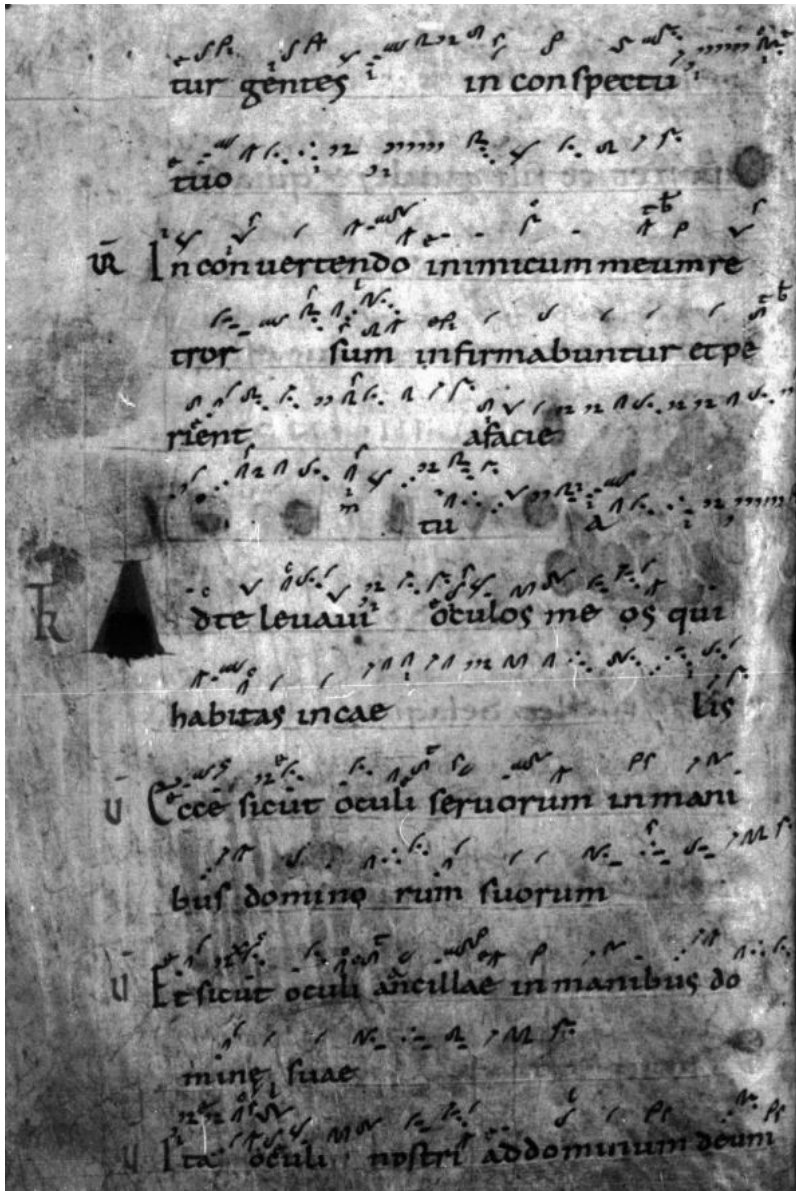 tur gentes in conspectu
tuo
VR In convertendo inimicum meum re
tror sum infirmabuntur et pe
rient afacie
tu a
TR Adte levavi oculos me os qui
habitas incae lis
V Ecce sicut oculi servorum in mani
bus domino rum suorum
V Et sicut oculi ancillae in manibus do
minę suae
V Ita oculi nostri ad dominum deum